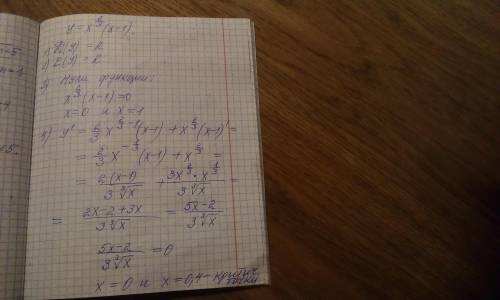 y = x^(2/3) (x-1).
1) D(y) = R
2) E(y) = R
3) Нули функции:
x^(2/3) (x-1) = 0
x=0 и x=1
4) y' = 2/3 x^(2/3 - 1) (x-1) + x^(2/3) (x-1)' =
= 2/3 x^(-1/3) (x-1) + x^(2/3) =
= 2(x-1) / 3∛x + 3x^(2/3) · x^(1/3) / 3∛x =
= 2x-2+3x / 3∛x = 5x-2 / 3∛x
5x-2 / 3∛x = 0
x = 0 и x = 0,4 - критич. точки